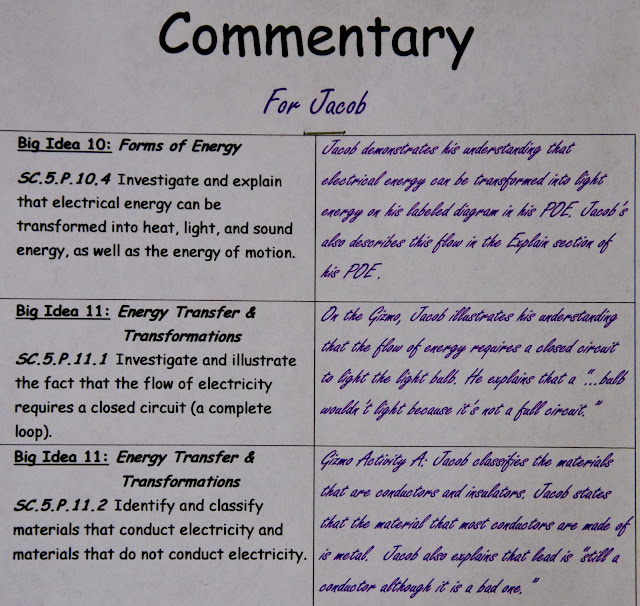 Commentary
For Jacob
Big Idea 10: Forms of Energy
SC.5.P.10.4 Investigate and explain
that electrical energy can be
transformed into heat, light, and sound
energy, as well as the energy of motion.
Jacob demonstrates his understanding that
electrical energy can be transformed into light
energy on his labeled diagram in his POE. Jacob's
also describes this flow in the Explain section of
his POE.
Big Idea 11: Energy Transfer &
Transformations
SC.5.P.11.1 Investigate and illustrate
the fact that the flow of electricity
requires a closed circuit (a complete
loop).
On the Gizmo, Jacob illustrates his understanding
that the flow of energy requires a closed circuit
to light the light bulb. He explains that a "...bulb
wouldn't light because it's not a full circuit."
Big Idea 11: Energy Transfer &
Transformations
SC.5.P.11.2 Identify and classify
materials that conduct electricity and
materials that do not conduct electricity.
Gizmo Activity A: Jacob classifies the materials
that are conductors and insulators. Jacob states
that the material that most conductors are made of
is metal. Jacob also explains that lead is "still a
conductor although it is a bad one."